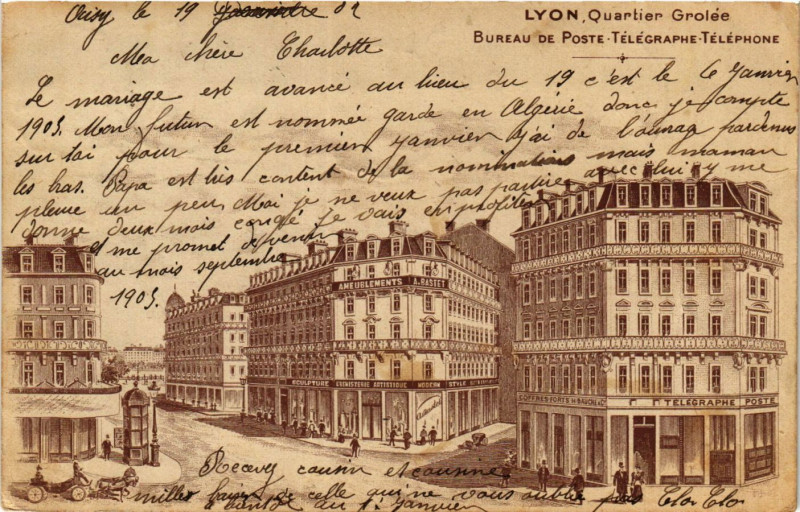 LYON, Quartier Grolée
BUREAU DE POSTE-TÉLÉGRAPHE-TÉLÉPHONE
le 19 02
Ma chère Charlotte
Le mariage est avancé au lieu du 19 c'est le 6 Janvier
1903. Mon futur est nommée garde en Algérie donc je compte
sur toi pour le premier janvier j'ai de l'ouvrag pardenus
les bras. Papa est très content de la nomination mais maman
pleure un peu. Moi je ne veux pas partire avec lui y me
donne deux mois congé je vais en profiter
et me promet de venir
au mois septembre
1903.
AMEUBLEMENTS A. BASTET
SCULPTURE EBENISTERIE ARTISTIQUE MODERN STYLE
COFFRES-FORTS
TÉLÉGRAPHE POSTE
Recevez cousin et cousine
milles baiser de celle qui ne vous oublie pas Clo Clo
a bientôt au 1er Janvier